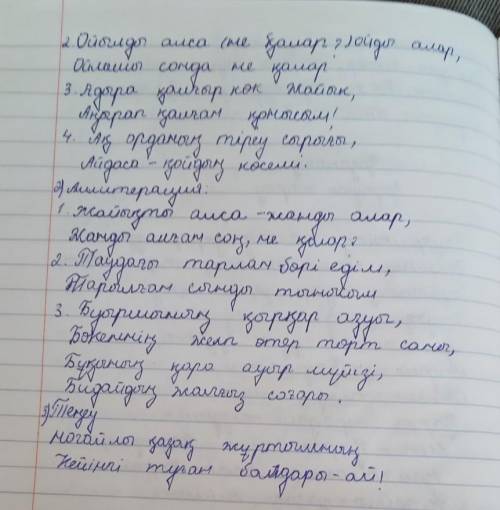 2. Ойылды алса (не қалар?) ойды алар,
Оймашы сонда не қалар?
3. Адыра қалғыр көк жайық,
Аңырап қалған қонысым!
4. Ақ орданың тіреу сырығы,
Айдаса - қойдың көсемі.
2) Аллитерация:
1. Жайықты алса - жанды алар,
Жанды алған соң, не қалар?
2. Таудағы тарлан бөрі едім,
Тарылған сынды тынысым
3. Буыршынның қырқар азуы,
Бөкеннің желп өтер төрт саны,
Бұқаның қара ауыр мүйізі,
Бидайдың жалғыз соғары.
3) Теңеу
Ноғайлы қазақ жұртымның
Кейінгі туған балдары-ай!